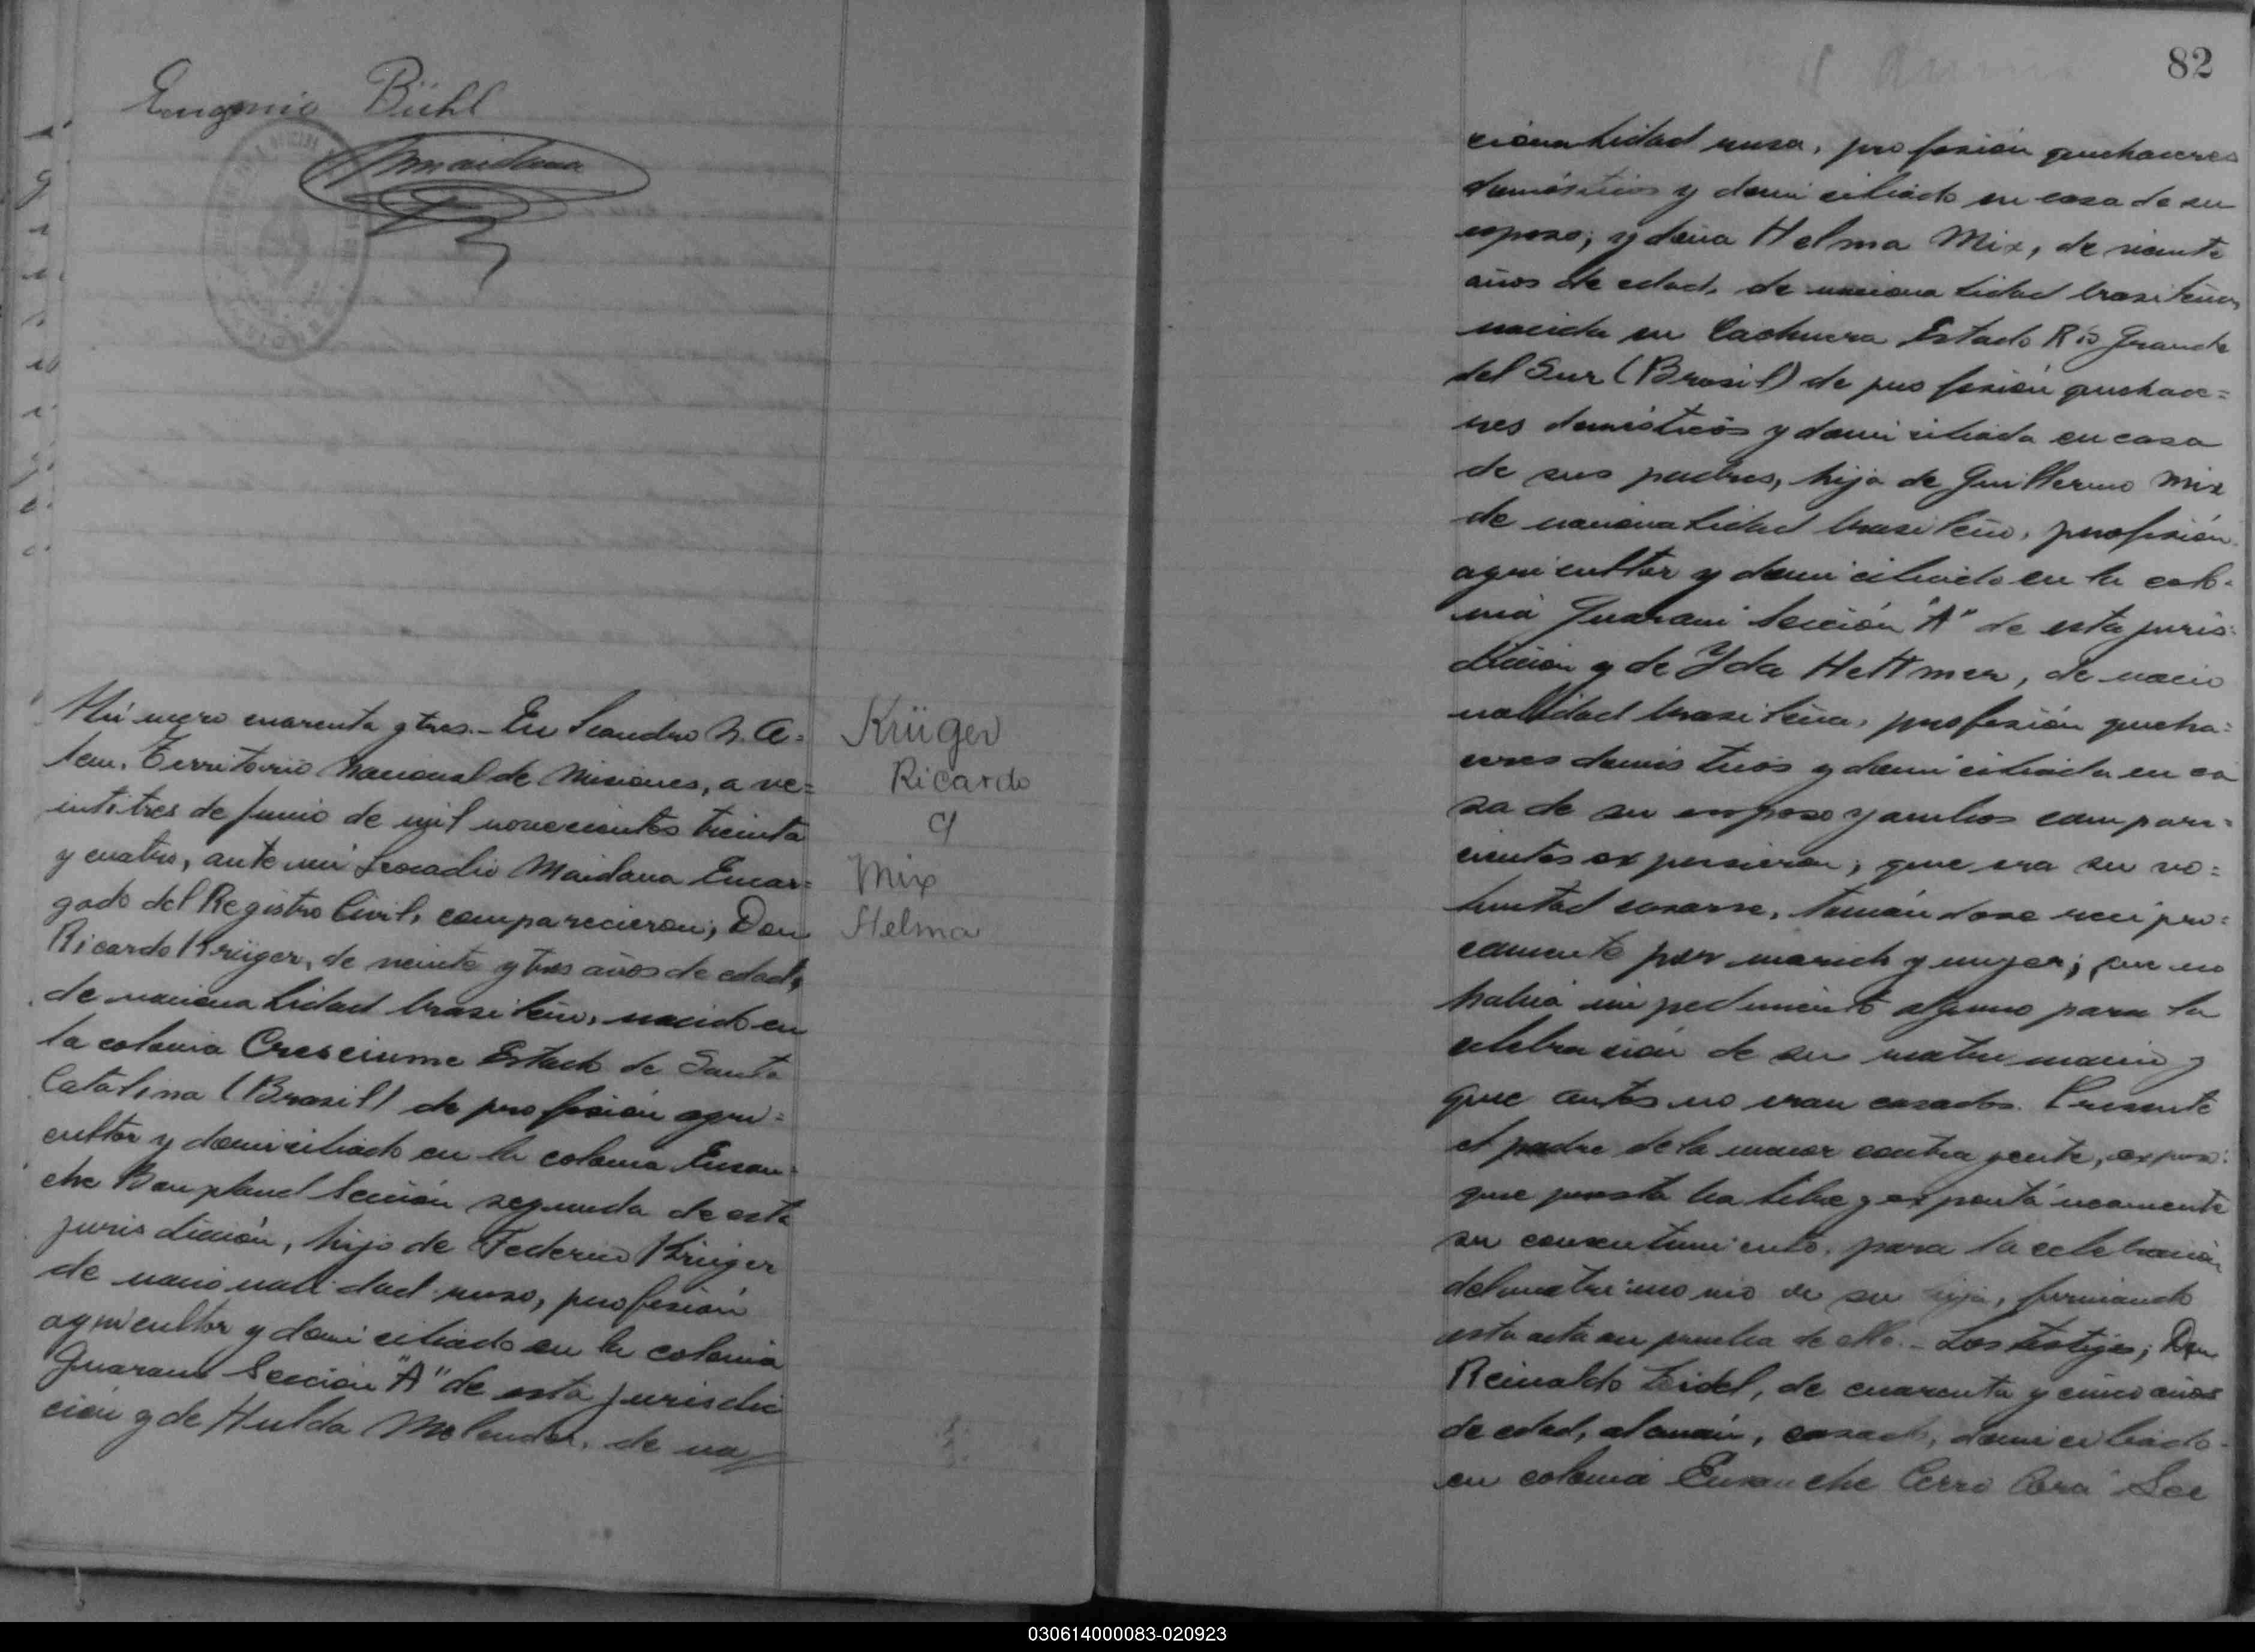 Eugenio Bühl
Maidana
Número cuarenta y tres.- En Leandro N. A=
lem, Territorio Nacional de Misiones, a ve=
intitres de Junio de mil novecientos treinta
y cuatro, ante mi Leocadio Maidana Encar=
gado del Registro Civil, comparecieron; Don
Ricardo Krüger, de veinte y tres años de edad,
de nacionalidad brasileño, nacido en
la colonia Cresciume Estado de Santa
Catalina (Brasil) de profesión agri=
cultor y domiciliado en la colonia Ensan=
che Bonpland Sección segunda de esta
jurisdicción, hijo de Federico Krüger
de nacionalidad ruso, profesión
agricultor y domiciliado en la colonia
Guarani Sección "A" de esta jurisdic
ción y de Hulda Molender, de na
Krüger
Ricardo
y
Mix
Helma
82
cionalidad rusa, profesión quehaceres
domésticos y domiciliado en casa de su
esposo; y doña Helma Mix, de veinte
años de edad, de nacionalidad brasileña,
nacida en Cachuera Estado Río Grande
del Sur (Brasil) de profesión quehace=
res domésticos y domiciliada en casa
de sus padres, hija de Guillermo Mix
de nacionalidad brasileño, profesión
agricultor y domiciliado en la colo=
nia Guarani Sección "A" de esta juris=
dicción y de Yda Hettmer, de nacio
nalidad brasileña, profesión queha=
ceres domésticos y domiciliada en ca
sa de su esposo y ambos compare=
cientes expusieron; que era su vo=
luntad casarse, tomándose recipro=
camente por marido y mujer; que no
había impedimento alguno para la
celebración de su matrimonio y
que antes no eran casados. Presente
el padre de la menor contrayente, expuso:
que presta su libre y expontáneamente
su consentimiento, para la celebración
del matrimonio de su hija, firmando
esta acta en prueba de ello.- Los testigos; Don
Reinaldo Zeidel, de cuarenta y cinco años
de edad, alemán, casado, domiciliado
en colonia Ensanche Cerro Corá Sec
030614000083-020923